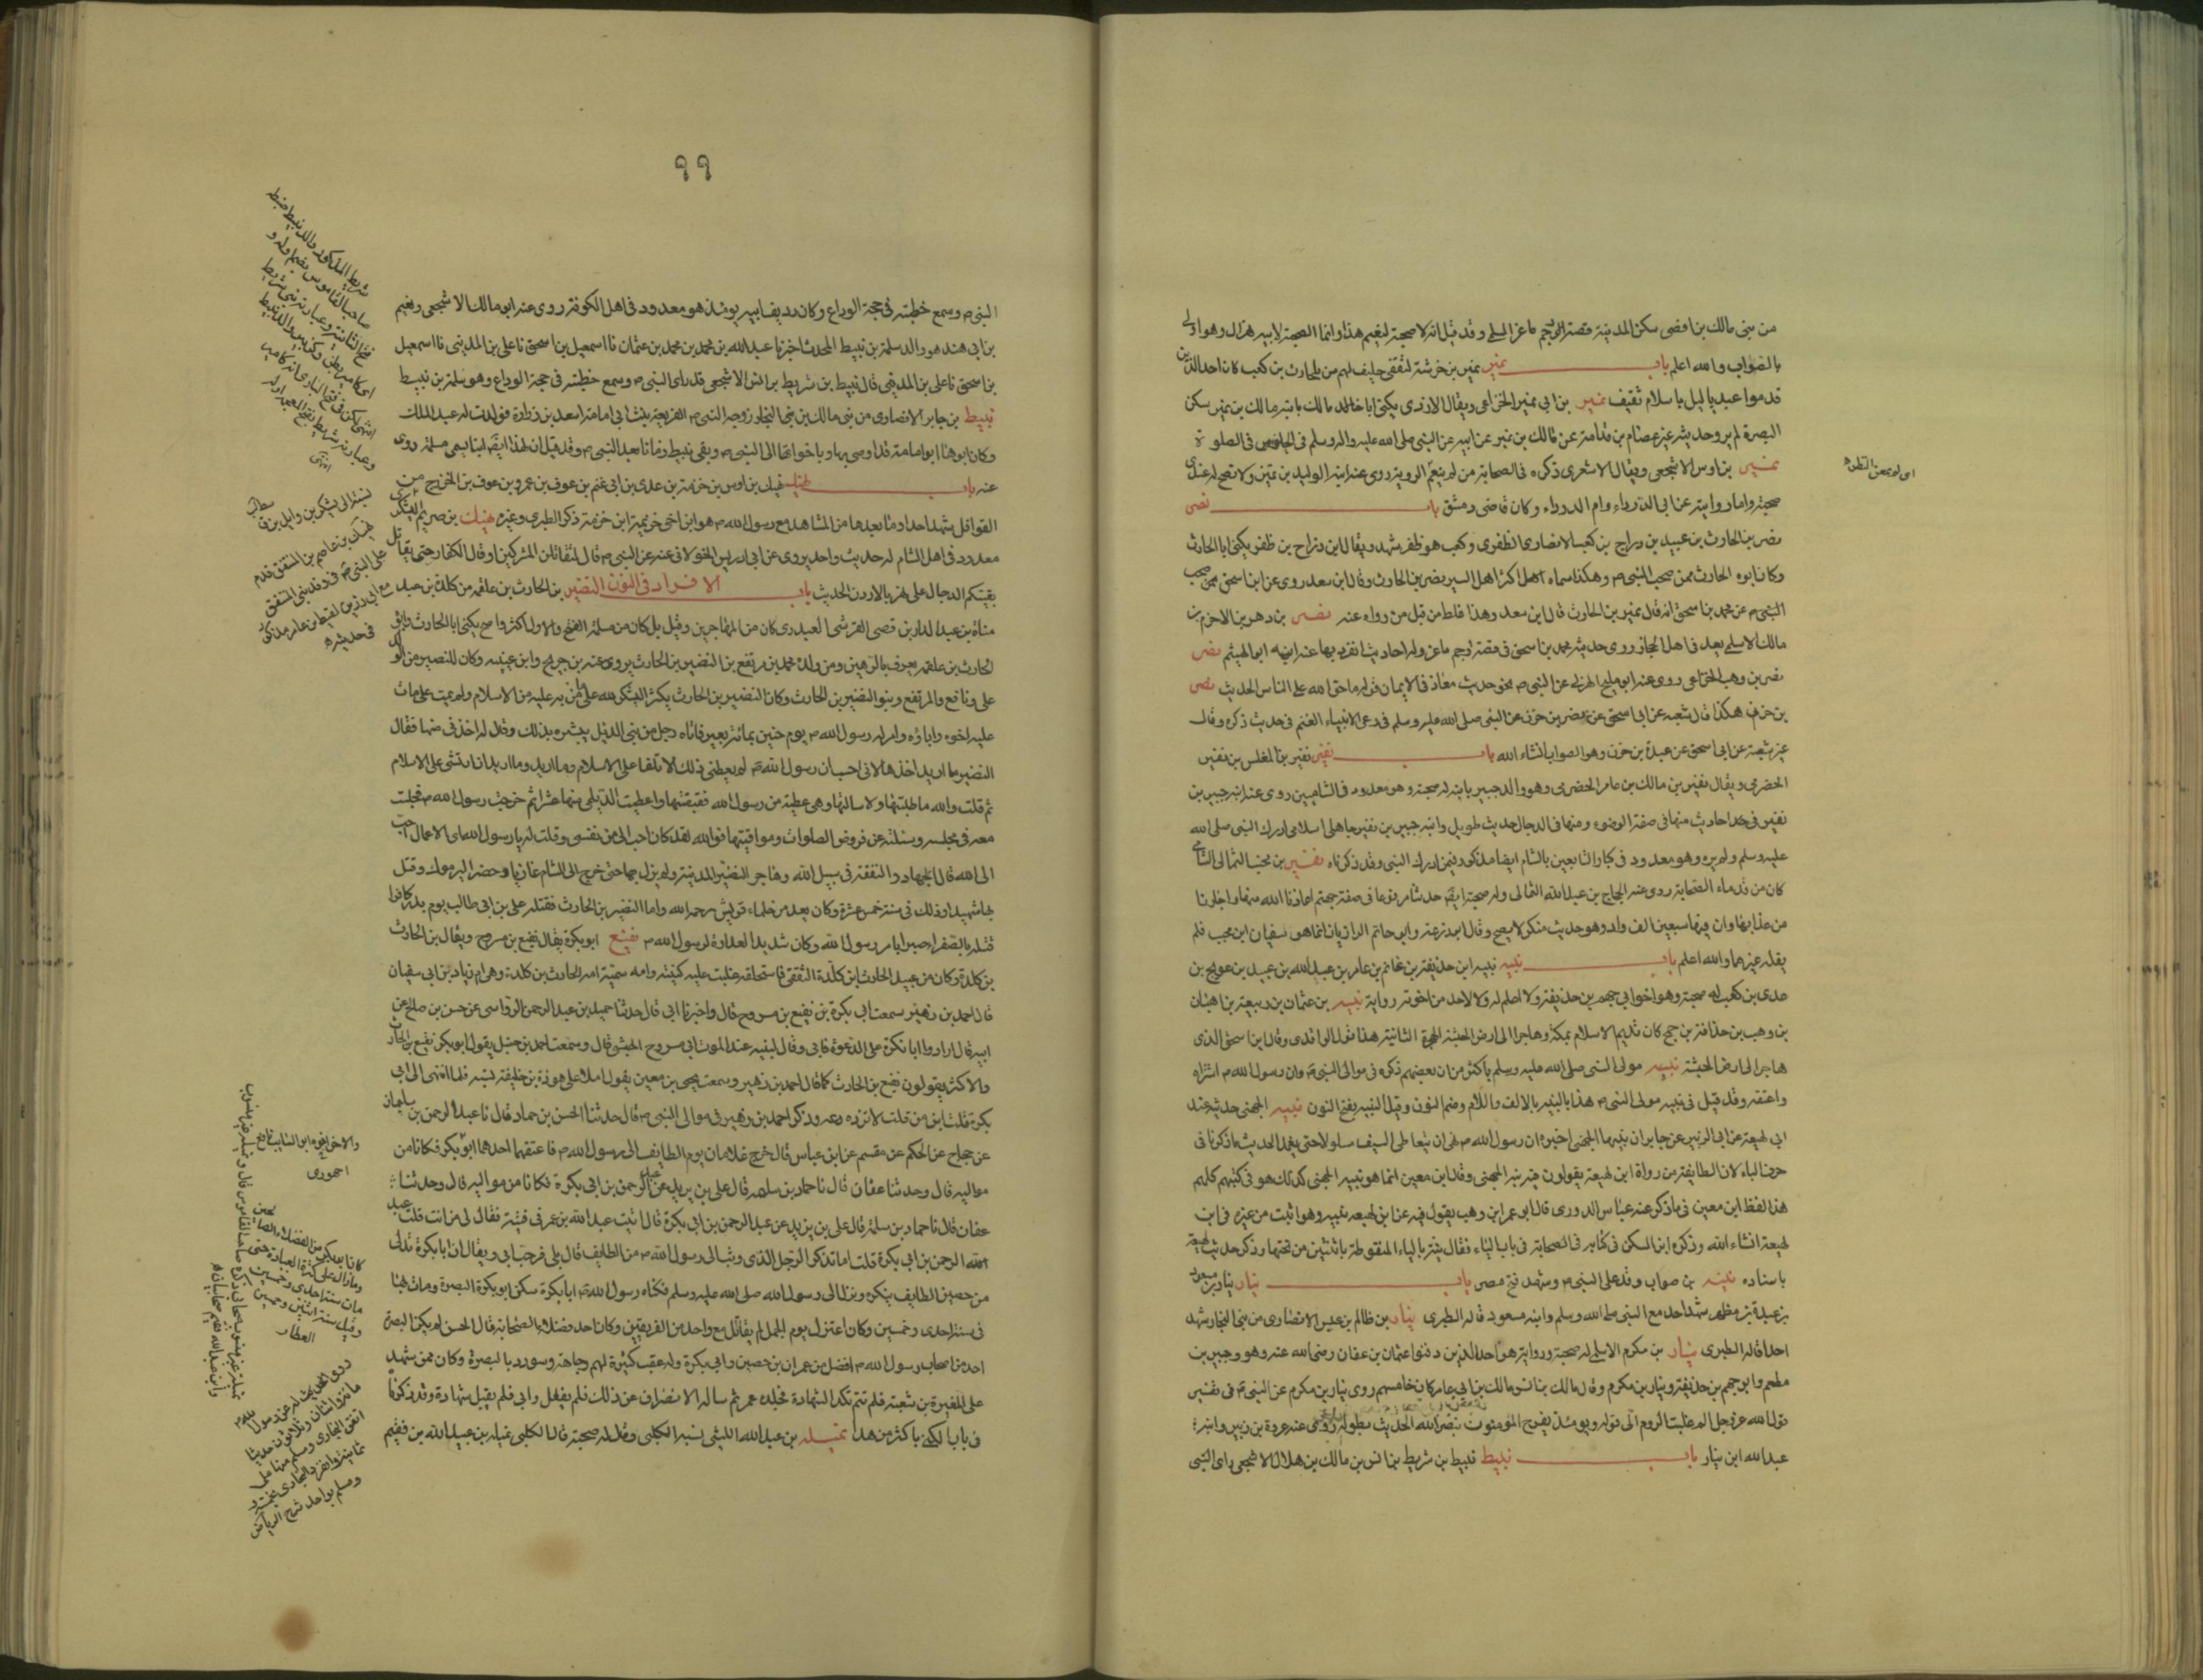 من بنى مالك بن افصى سكن المدينة قصة الرجم ماعز الاسلمى وقد قيل انه لا صحبة لنعيم هذا وانما الصحبة لابيه هزال وهو اولى
بالصواب والله اعلم باب نمير نمير بن خرشة الثقفى حليف لهم من بلحارث بن كعب كان احد الذين
قدموا عبد ياليل باسلام ثقيف نمير بن ابى نمير الخزاعى ويقال الازدى يكنى ابا مالك بابنه مالك بن نمير سكن
البصرة لم يرو حديثه غير عصام بن قدامة عن مالك بن نمير عن ابيه عن النبى صلى الله عليه واله وسلم فى الجلوس فى الصلوة
نمير بن اوس الاشجعى ويقال الاشعرى ذكره فى الصحابة من لم ينعم الروية روى عنه ابنه الوليد بن نمير ولا تصح له عندى
صحبة وانما روايته عن ابى الدرداء وام الدرداء وكان قاضى دمشق باب نصر
نصر بن الحارث بن عبيد بن رزاح بن كعب الانصارى الظفرى وكعب هو ظفر شهد ويقال ابن رزاح بن ظفر يكنى ابا الحارث
وكان ابوه الحارث ممن صحب النبى م وهكذا سماه اكثر اهل السير نصر بن الحارث وقال ابن سعد روى عن ابن اسحق ممن صحب
النبى م عن محمد بن اسحق انه قال نمير بن الحارث قال ابن سعد وهذا غلط من قبل من رواه عنه نصر بن دهر بن الاخرم بن
مالك الاسلمى يعد فى اهل الحجاز روى حديثه محمد بن اسحق فى قصة رجم ماعز وله احاديث انفرد بها عنه ابنه ابو الهيثم نصر
نصر بن وهب الخزاعى روى عنه ابو مليح الهذلى عن النبى م نحو حديث معاذ فى الايمان قوله ما حق الله على الناس الحديث نصر
بن حزن هكذا قال شعبه عن ابى اسحق عن نصر بن حزن عن النبى صلى الله عليه وسلم فى رعى الانبياء الغنم فى حديث ذكره وقال
غير شعبة عن ابى اسحق عن عبدة بن حزن وهو الصواب انشاء الله باب نفير نفير بن المغلس بن نفير
الحضرمى ويقال نفير بن مالك بن عامر الحضرمى وهو والد جبير بابنه له صحبة وهو معدود فى الشاميين روى عنه ابنه جبير بن
نفير احاديث منها فى صفة الوضوء ومنها فى الدجال حديث طويل وابنه جبير بن نفير جاهلى اسلامى ادرك النبى صلى الله
عليه وسلم ولم يره وهو معدود فى كبار التابعين بالشام ايضا مذكور فيمن ادرك النبى وقد ذكرناه نفير بن مجيب الثمالى الشامى
كان من قدماء الصحابة روى عنه الحجاج بن عبد الله الثمالى وله صحبة ايضا حديثا مرفوعا فى صفة جهنم اعاذنا الله منها واجارنا
من عذابها وان فيها سبعين الف واد وهو حديث منكر لا يصح وقال ابو زرعة وابو حاتم الرازيان انما هو سفيان ابن مجيب فلم
يقله غيرهما والله اعلم باب نبيه نبيه ابن حذيفة بن غانم بن عامر بن عبد الله بن عبيد بن عويج بن
عدى بن كعب له صحبة وهو اخو ابى جهم بن حذيفة ولا اعلم له ولا لاحد من اخوته رواية نبيه بن عثمان بن ربيعة بن اهبان
بن وهب بن حذافة بن جمح كان قديم الاسلام بمكة وهاجر الى ارض الحبشة الهجرة الثانية هذا قول الواقدى وقال ابن اسحق الذى
هاجر الى ارض الحبشة نبيه مولى النبى صلى الله عليه وسلم باكثر من ان بعضهم ذكره فى موالى النبى م وان رسول الله م اشتراه
واعتقه وقد قيل فى نبيه مولى النبى م هذا بالنبيه بالالف واللام وضم النون وقيل النبيه بفتح النون نبيه الجهنى حديثه عند
ابن لهيعة عن ابى الزبير عن جابر ان نبيها الجهنى اخبره ان رسول الله م نهى ان يتعاطى السيف مسلولا حتى يغمد الحديث ما ذكرنا فى
حرف الباء لان الطايفة من رواة ابن لهيعة يقولون فيه بنة الجهنى وقال ابن معين انما هو نبيه الجهنى كذلك هو فى كتبهم كلهم
هذا لفظ ابن معين فى ما ذكر عنه عباس الدورى قال ابو عمر ابن وهب يقول فيه عن ابن لهيعه نبيه وهو اثبت من غيره فى ابن
لهيعة انشاء الله وذكره ابن السكن فى كتابه فى الصحابة فى باب الياء فقال ينة بالياء المنقوطة باثنتين من تحتها وذكر حديث لهيعة
باسناده نبيه بن صواب وفد على النبى م وشهد فتح مصر باب نيار نيار بن مسعود
بن عبدة بن مظهر شهد احد مع النبى صلى الله وسلم وابنه مسعود قاله الطبرى نيار بن ظالم بن عبس الانصارى من بنى النجار شهد
احدا قاله الطبرى نيار بن مكرم الاسلمى له صحبة ورواية هو احد الذين دفنوا عثمان بن عفان رضى الله عنه وهو وجبير بن
مطعم وابو جهم بن حذيفة ونيار بن مكرم وقال مالك بن انس مالك بن ابى عامر كان خامسهم روى نيار بن مكرم عن النبى م فى تفسير
قول الله عز وجل الم غلبت الروم الى قوله ويومئذ يفرح المؤمنون بنصر الله الحديث بطوله روى عنه عروة بن زبير وابنه
عبد الله ابن نيار باب نبيط نبيط بن شريط بن انس بن مالك بن هلال الاشجعى راى النبى
٩٩
النبى م وسمع خطبته فى حجة الوداع وكان رديف ابيه يومئذ هو معدود فى اهل الكوفة روى عنه ابو مالك الاشجعى ونعيم
بن ابى هند هو والد سلمة بن نبيط المحدث اخبرنا عبد الله بن محمد بن محمد بن عثمان نا اسمعيل بن اسحق نا على بن المدينى نا اسمعيل
بن اسحق نا على بن المدينى قال نبيط بن شريط بن انس الاشجعى قد راى النبى م وسمع خطبته فى حجة الوداع وهو سلمة بن نبيط
نبيط بن جابر الانصارى من بنى مالك بن بنى النجار زوجه النبى م الفريعة بنت ابى امامة اسعد بن زرارة فولدت له عبد الملك
وكان ابوها ابو امامة قد اوصى بها وباخواتها الى النبى م وبقى نبيط زمانا بعد النبى م وقد قيل ان لهذا ايضا ابنا يسمى سلمة روى
عنه باب نهيك نهيك بن اوس بن خزمة بن عدى بن ابى غنم بن عوف بن عمرو بن عوف بن الخزرج من
القواقل شهد احدا وما بعدها من المشاهد مع رسول الله م هو ابن اخى خزيمة ابن خزمة ذكر الطبرى وغيره نهيك بن صريم اليشكرى
معدود فى اهل الشام له حديث واحد يروى عن ابى ادريس الخولانى عنه عن النبى م قال لتقاتلن المشركين او قال الكفار حتى يقاتل
بقيتكم الدجال على نهر بالاردن الحديث باب الافراد فى النون النضير بن الحارث بن علقمة بن كلدة بن عبد
مناف بن عبد الدار بن قصى القرشى العبدرى كان من المهاجرين وقيل بل كان من مسلمة الفتح والاول اكثر واصح يكنى ابا الحارث وابوه
الحارث بن علقمه يعرف بالرهين ومن ولده محمد بن مرتفع بن النضير بن الحارث يروى عنه بن جريج وابن عيينه وكان للنضير من الولد
على ونافع والمرتفع وبنو النضير بن الحارث وكان النضير بن الحارث يكثر الشكر لله على ما من به عليه من الاسلام ولم يمت على ما مات
عليه اخوه واباؤه وامر له رسول الله م يوم حنين بمائة بعير فاتاه رجل من بنى الديل يبشره بذلك وقال له اخذنى منها فقال
النضير ما اريد اخذها لانى احسب ان رسول الله م لم يعطنى ذلك الا تالفا على الاسلام وما اريد وما اريد ان ارتشى على الاسلام
ثم قلت والله ما طلبتها ولا سالتها وهى عطية من رسول الله فقبضتها واعطيت الديلى منها عشرا ثم خرجت رسول الله م فجلست
معه فى مجلسه وسئلته عن فروض الصلوات ومواقيتها فوالله لقد كان احب الى من نفسى وقلت له يا رسول الله اى الاعمال احب
الى الله قال الجهاد والنفقة فى سبيل الله وهاجر النضير المدينة ولم يزل بها حتى خرج الى الشام غازيا وحضر اليرموك وقتل
بها شهيدا وذلك فى سنة خمس عشرة وكان يعد من حلماء قريش رحمه الله واما النضر بن الحارث فقتله على بن ابى طالب يوم بدر كافرا
قتله بالصفراء صبرا بامر رسول الله وكان شديد العداوة لرسول الله م نفيع ابو بكرة يقال نفيع بن مسروح ويقال بن الحارث
بن كلدة وكان من عبيد الحارث ابن كلدة الثقفى فاستحلقه غلبت عليه كنيته وامه سمية امه الحارث بن كلدة وهى ام زياد بن ابى سفيان
قال احمد بن زهير سمعت ابى بكرة بن نفيع بن مسروح قال واخبرنا ابى قال حدثنا حميد بن عبد الرحمن الرواسى عن حسن بن صالح عن
ابيه قال ارادوا ابا بكرة على الدعوة فابى وقال لبنيه عند الموت ابى مسروح الحبشى قال وسمعت احمد بن حنبل يقول ابو بكر نفيع بن الحارث
والاكثر يقولون نفيع بن الحارث كما قال احمد بن زهير وسمعت يحيى بن معين يقول املا على هوذة بن خليفة نسبه فلما انتهى الى ابى
بكرة قلت ابن من قلت لا تزده وعه وذكر احمد بن زهير فى موالى النبى م قال حدثنا الحسن بن حماد قال نا عبد الرحمن بن سليمان
عن حجاج عن الحكم عن مقسم عن ابن عباس قال خرج غلامان يوم الطايف الى رسول الله م فاعتقهما احدهما ابو بكر فكانا من
مواليه قال وحدثنا عفان قال نا حماد بن سلمه قال على بن يزيد عن عبد الرحمن بن ابى بكرة فكانا من مواليه قال وحدثنا
عفان قال نا حماد بن سلمة قال على بن يزيد عن عبد الرحمن بن ابى بكرة قال اتيت عبد الله بن عمر فى فتية فقال لى من انت قلت عبد
الرحمن بن ابى بكرة قلت اما تذكر الرجل الذى وثب الى رسول الله م من الطايف قال بلى فرحب بى ويقال ان ابا بكرة تدلى
من حصين الطايف ببكرة ونزل الى رسول الله صلى الله عليه وسلم فكناه رسول الله م ابا بكرة سكن ابو بكرة البصرة ومات بها
فى سنة احدى وخمسين وكان اعتزل يوم الجمل لم يقاتل مع واحد من الفريقين وكان احد فضلاء الصحابة قال الحسن لم يكن البصرة
احد من اصحاب رسول الله م افضل من عمران بن حصين وابى بكرة وله عقب كثيرة لهم وجاهة وسودد بالبصرة وكان ممن شهد
على المغيرة بن شعبة فلم تتم تلك الشهادة فجلده عمر ثم ساله الانصراف عن ذلك فلم يفعل وابى فلم يقبل شهادة وقد ذكرناه
فى باب الكنى باكثر من هذا نميله بن عبد الله الليثى نسبه الكلبى وقال له صحبة قال الكلبى نميله بن عبيد الله بن فقيم
شريط المذكور والد نبيط ضبط
صاحب القاموس بضم اوله و
فتح الثانية وعبارته
نسبة الى يشكر بن وايل بن ق
نهيك بن عاصم بن المنتفق قدم
على النبى م فى وفد بنى المنتفق
مع ابى رزين لقيط بن عامر مذكور
فى حديثه
والاخر
كانا ابو بكر من الفضلاء الصالحين
وما زال على كثرة العبادة حتى
مات سنة احدى وخمسين
وقيل سنة اثنين وخمسين
العطار
روى الحديث له عن رسول الله
مائة واثنان وثلاثون حديثا
اتفق البخارى ومسلم منها على
ثمانية وانفرد البخارى بخمسة و
ومسلم بواحد شرح الرياض